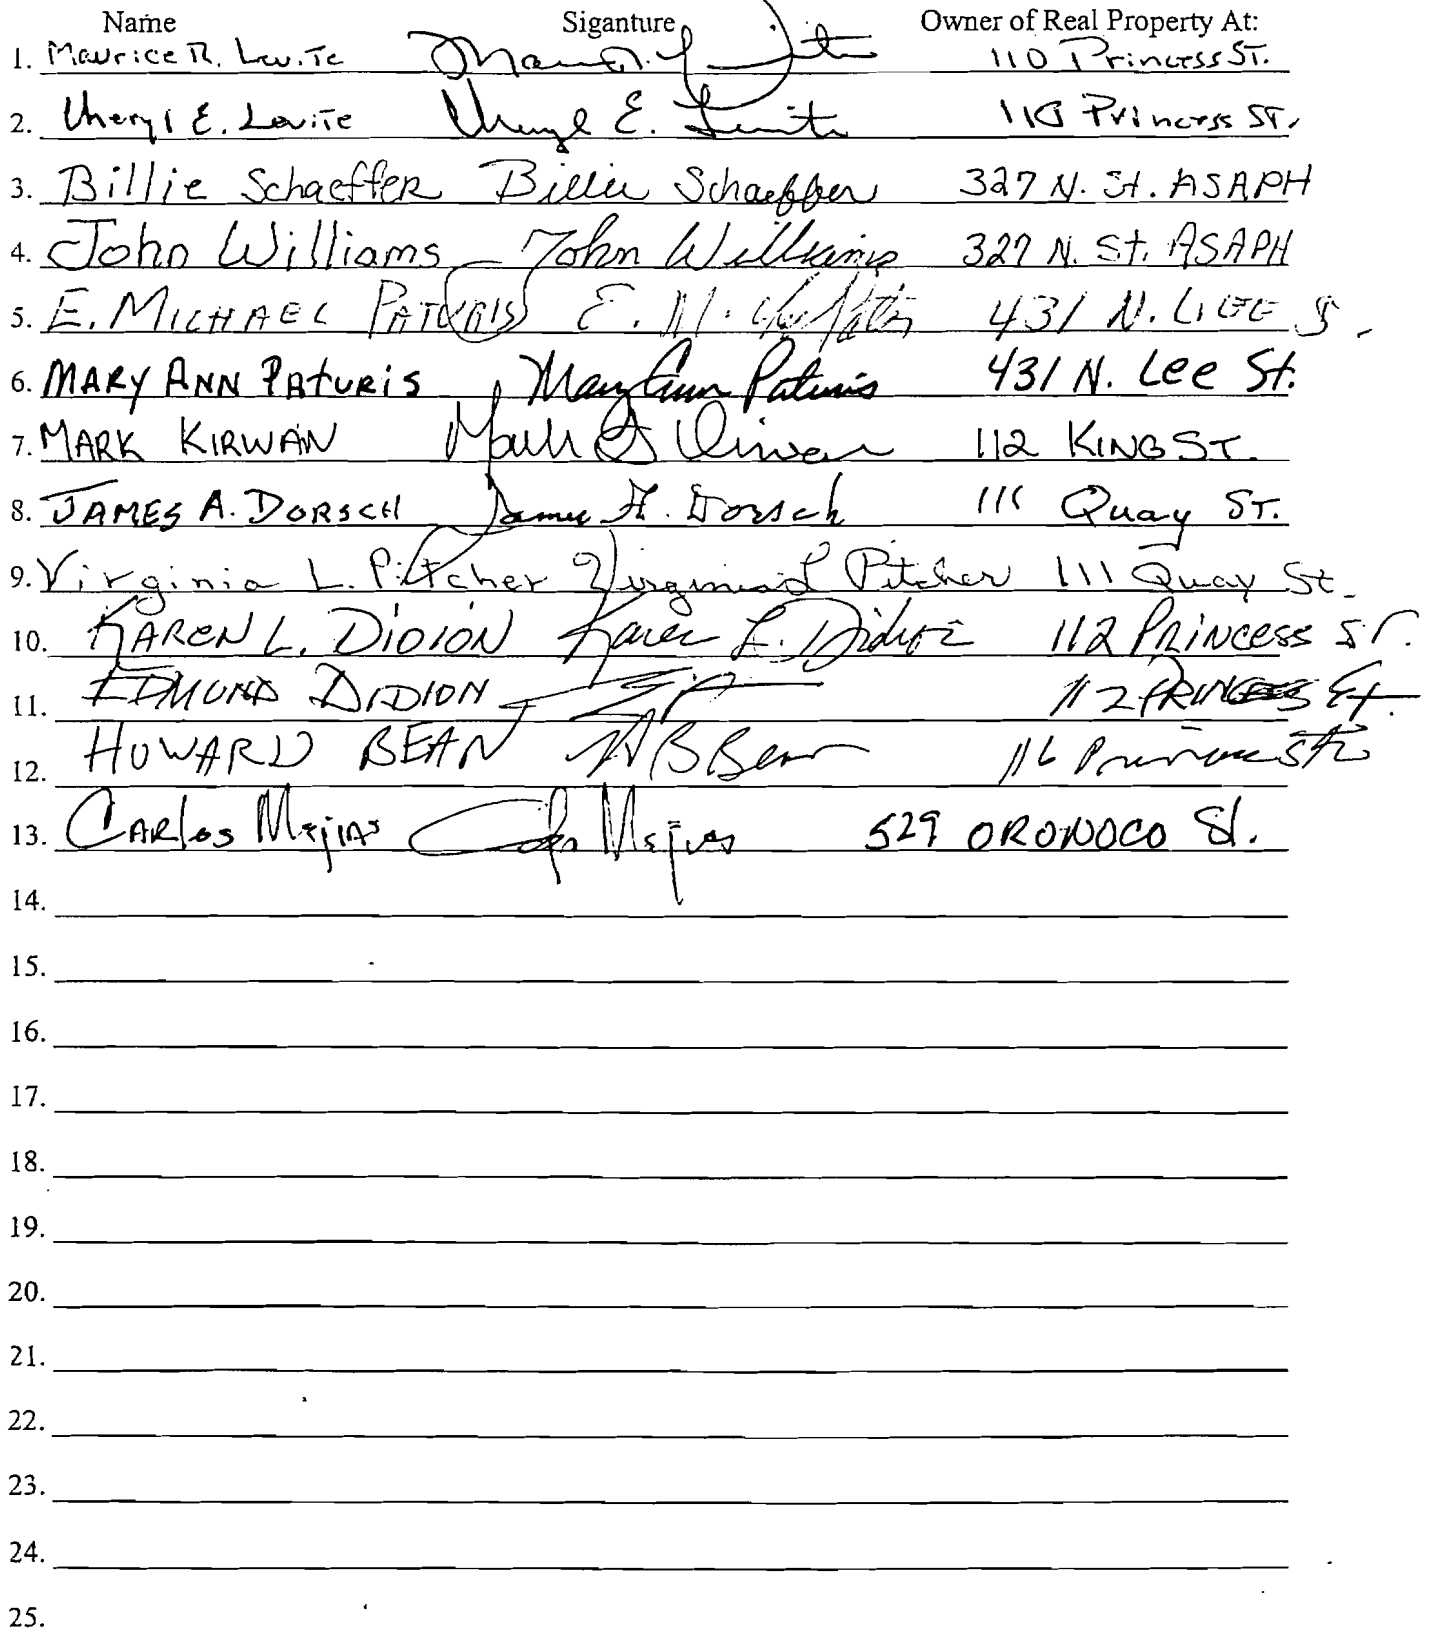 Name Siganture Owner of Real Property At:
1. Maurice R. Levite 110 Princess ST.
2. Cheryl E. Levite Cheryl E. Levite 110 Princess ST.
3. Billie Schaeffer Billie Schaeffer 327 N. St. ASAPH
4. John Williams John Williams 327 N. St. ASAPH
5. E. MICHAEL PATURIS E. M. 431 N. LEE S.
6. MARY ANN PATURIS Mary Ann Paturis 431 N. Lee St.
7. MARK KIRWAN Mark Kirwan 112 KING ST.
8. JAMES A. DORSCH James A. Dorsch 111 Quay ST.
9. Virginia L. Pitcher Virginia L Pitcher 111 Quay St.
10. KAREN L. DIDION Karen L. Didion 112 PRINCESS ST.
11. EDMUND DIDION 112 PRINCESS St.
12. HOWARD BEAN H B Bean 116
13. CARlos Mejias Mejias 529 ORONOCO St.
14.
15.
16.
17.
18.
19.
20.
21.
22.
23.
24.
25.